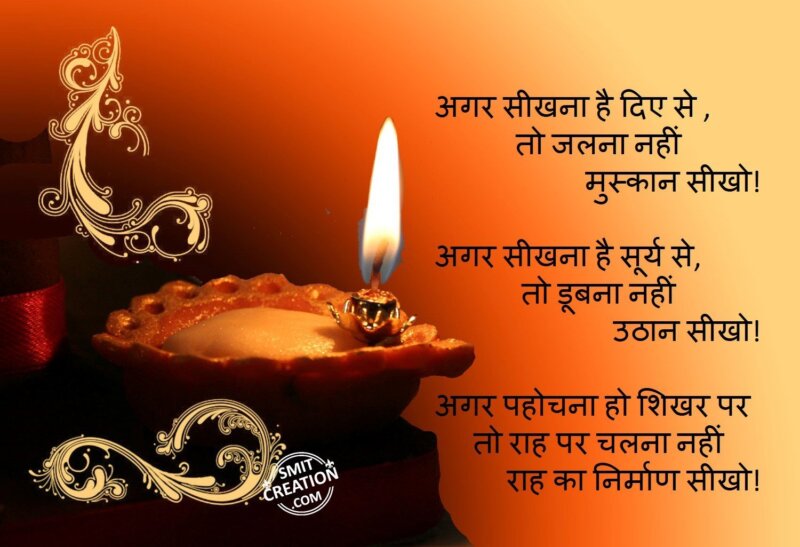 अगर सीखना है दिए से ,
तो जलना नहीं
मुस्कान सीखो!
अगर सीखना है सूर्य से,
तो डूबना नहीं
उठान सीखो!
अगर पहोचना हो शिखर पर
तो राह पर चलना नहीं
राह का निर्माण सीखो!
SMIT
CREATION
.COM